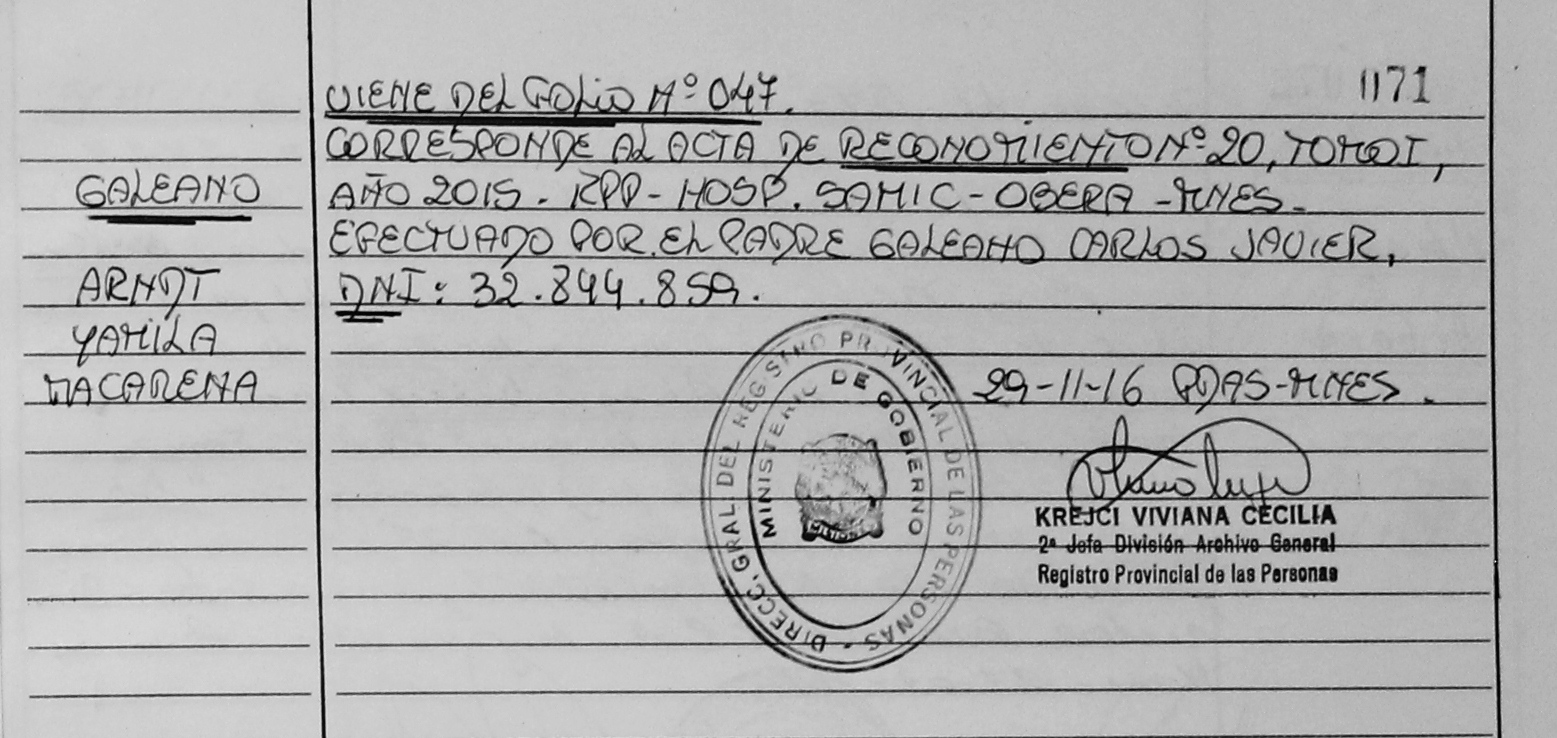 071
VIENE DEL FOLIO Nº 047.
CORRESPONDE AL ACTA DE RECONOMIENTO Nº 20, TOMO I,
GALEANO
AÑO 2015. RPP - HOSP. SAMIC - OBERA - MNES.
EFECTUADO POR EL PADRE GALEANO CARLOS JAVIER,
ARNDT
DNI: 32.844.859.
YAMILA
MACARENA
29-11-16 PDAS-MNES.
DIRECC. GRAL. DEL REGISTRO PROVINCIAL DE LAS PERSONAS
MINISTERIO DE GOBIERNO
KREJCI VIVIANA CECILIA
2ª Jefa División Archivo General
Registro Provincial de las Personas